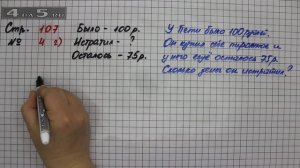 4 5.
Стр. 107
№ 4 2)
Было - 100 р.
Истратил - ?
Осталось - 75 р.
У Пети было 100 рублей.
Он купил себе пирожное и
у него ещё осталось 75 р.
Сколько денег он истратил?